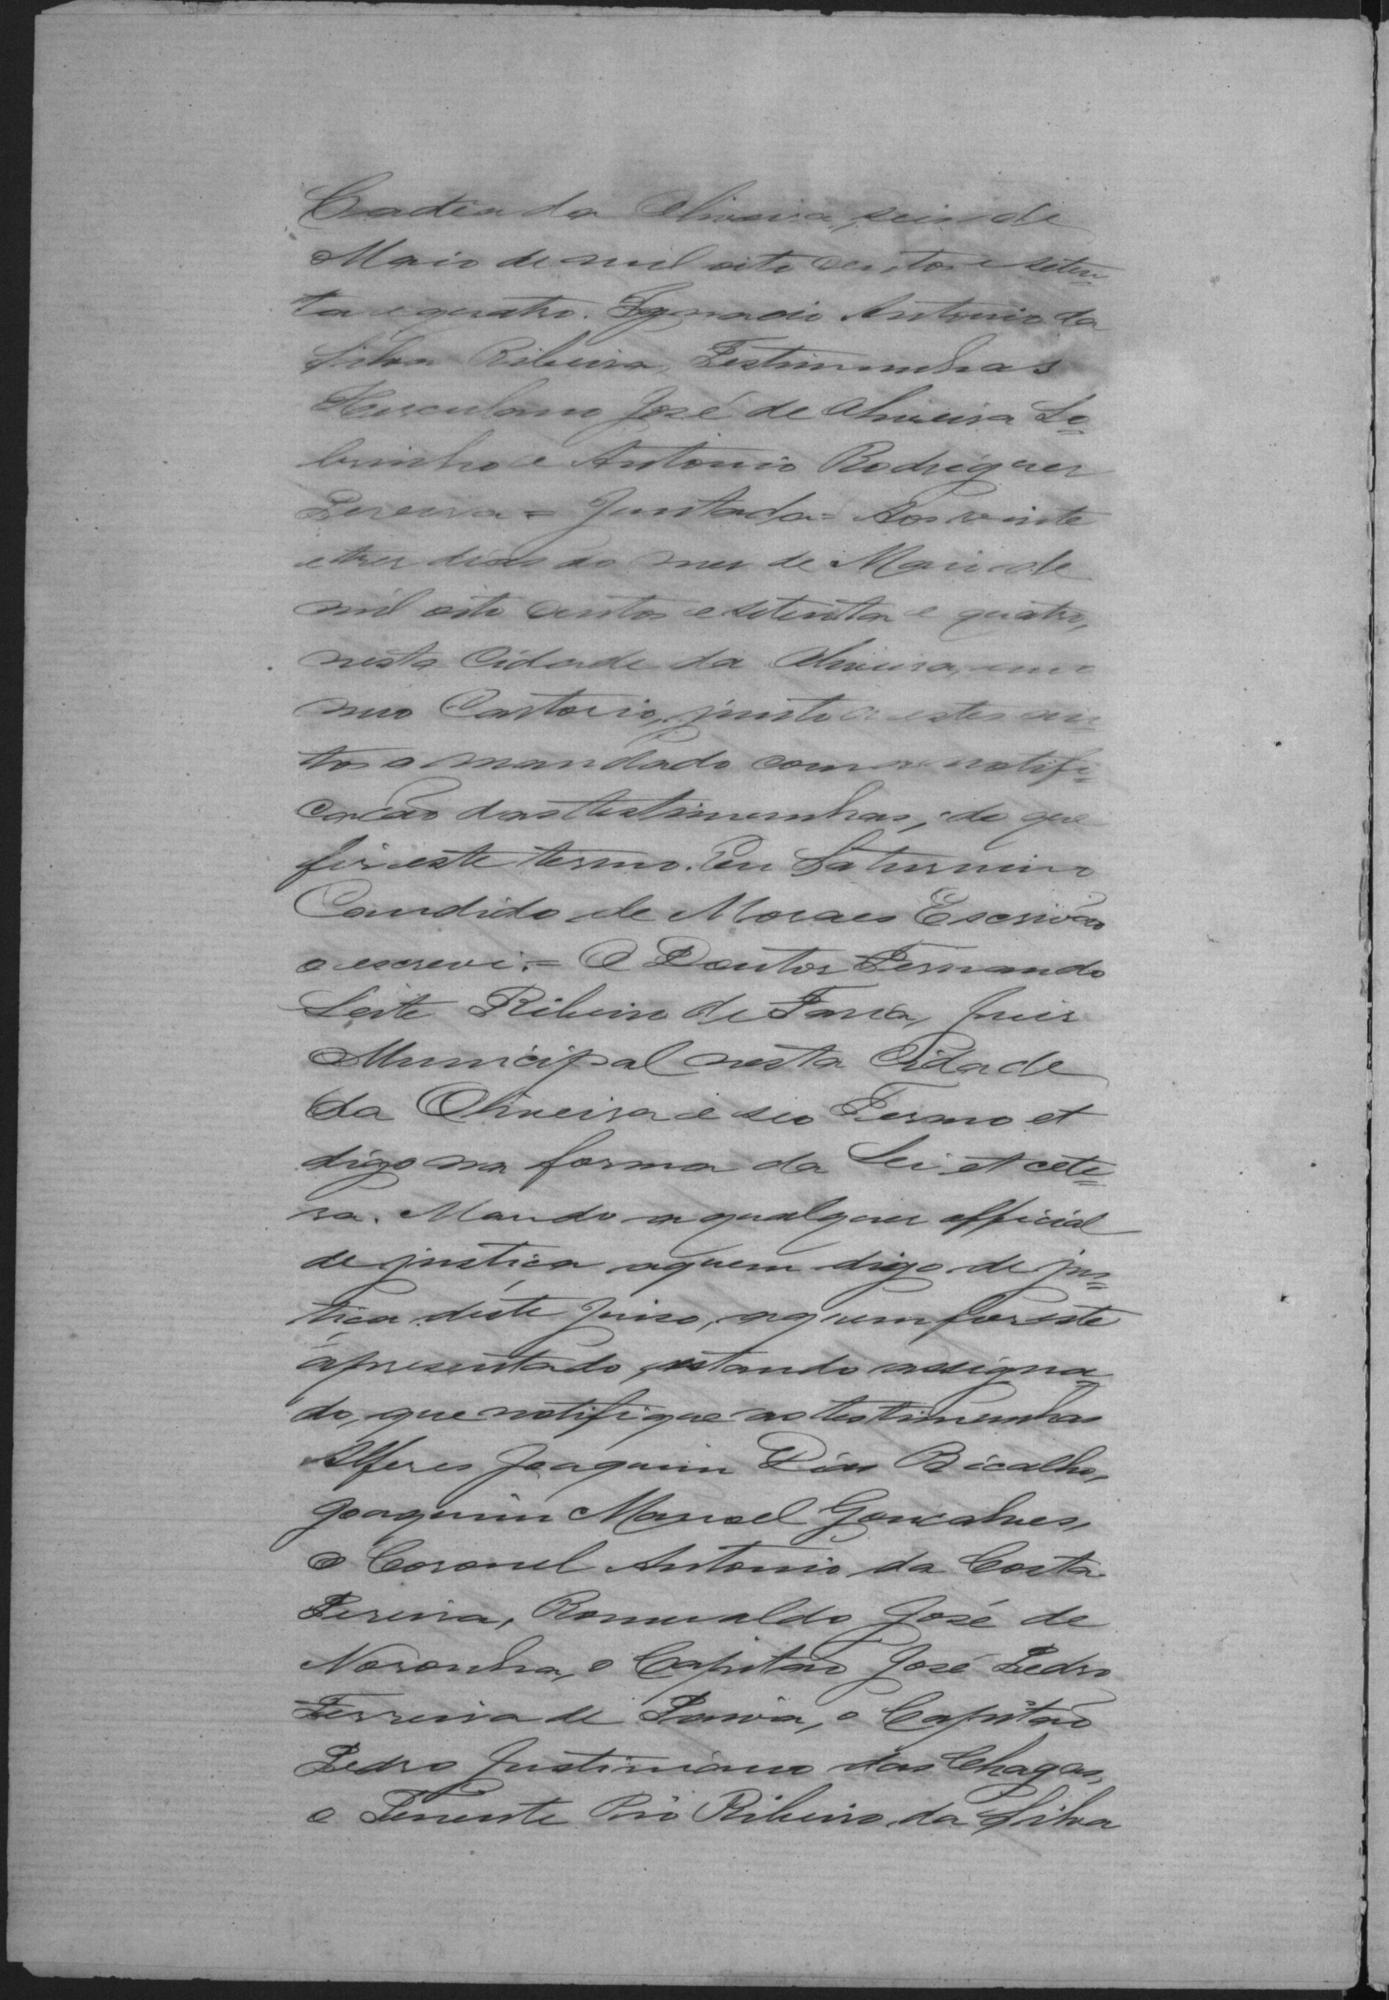 Cadea da Oliveira, seis de
Maio de mil oito centos e seten-
ta e quatro. Ignacio Antonio da
Silva Ribeiro, Testimunhas
Herculano José de Oliveira So-
brinho e Antonio Rodrigues
Pereira = Juntada = Aos vinte
e tres dias do mes de Maio de
mil oito centos e setenta e quatro,
nesta Cidade da Oliveira, em
meo Cartorio, junto a estes au-
tos o mandado com a notifi-
cacão das testimunhas, de que
fis este termo. Eu Saturnino
Candido de Moraes Escrivão
o escrevi. = O Doutor Fernando
Leite Ribeiro de Faria, Juis
Municipal nesta Cidade
da Oliveira e seo Termo et
digo na forma da Lei et cete-
ra. Mando a qualquer official
de justiça aquem digo de jus-
tiça deste Juiso, aquem for este
apresentado, estando assigna-
do, que notifique as testimunhas
Alferes Joaquim Dias Bicalho,
Joaquim Manoel Gonçalves,
o Coronel Antonio da Costa
Pereira, Romualdo José de
Noronha, o Capitão José Pedro
Ferreira de Paiva, o Capitão
Pedro Justiniano das Chagas,
o Tenente Pio Ribeiro da Silva